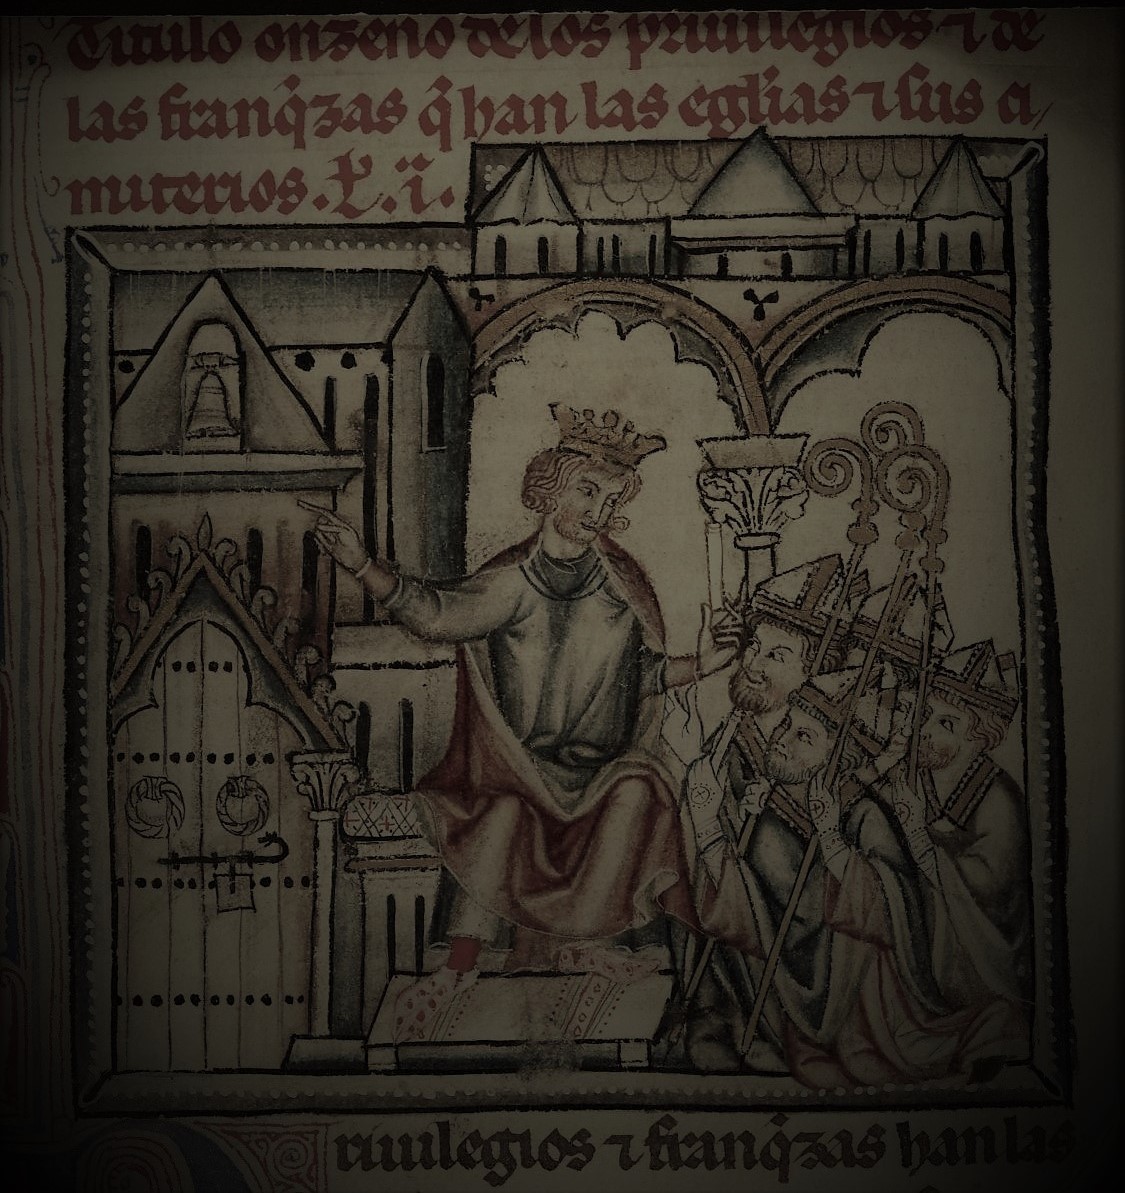 Titulo onzeno delos priuilegios ⁊ de
las franq̃zas q̃ han las egl̃ias ⁊ sus ci
miterios.
riuilegios ⁊ franq̃zas han las